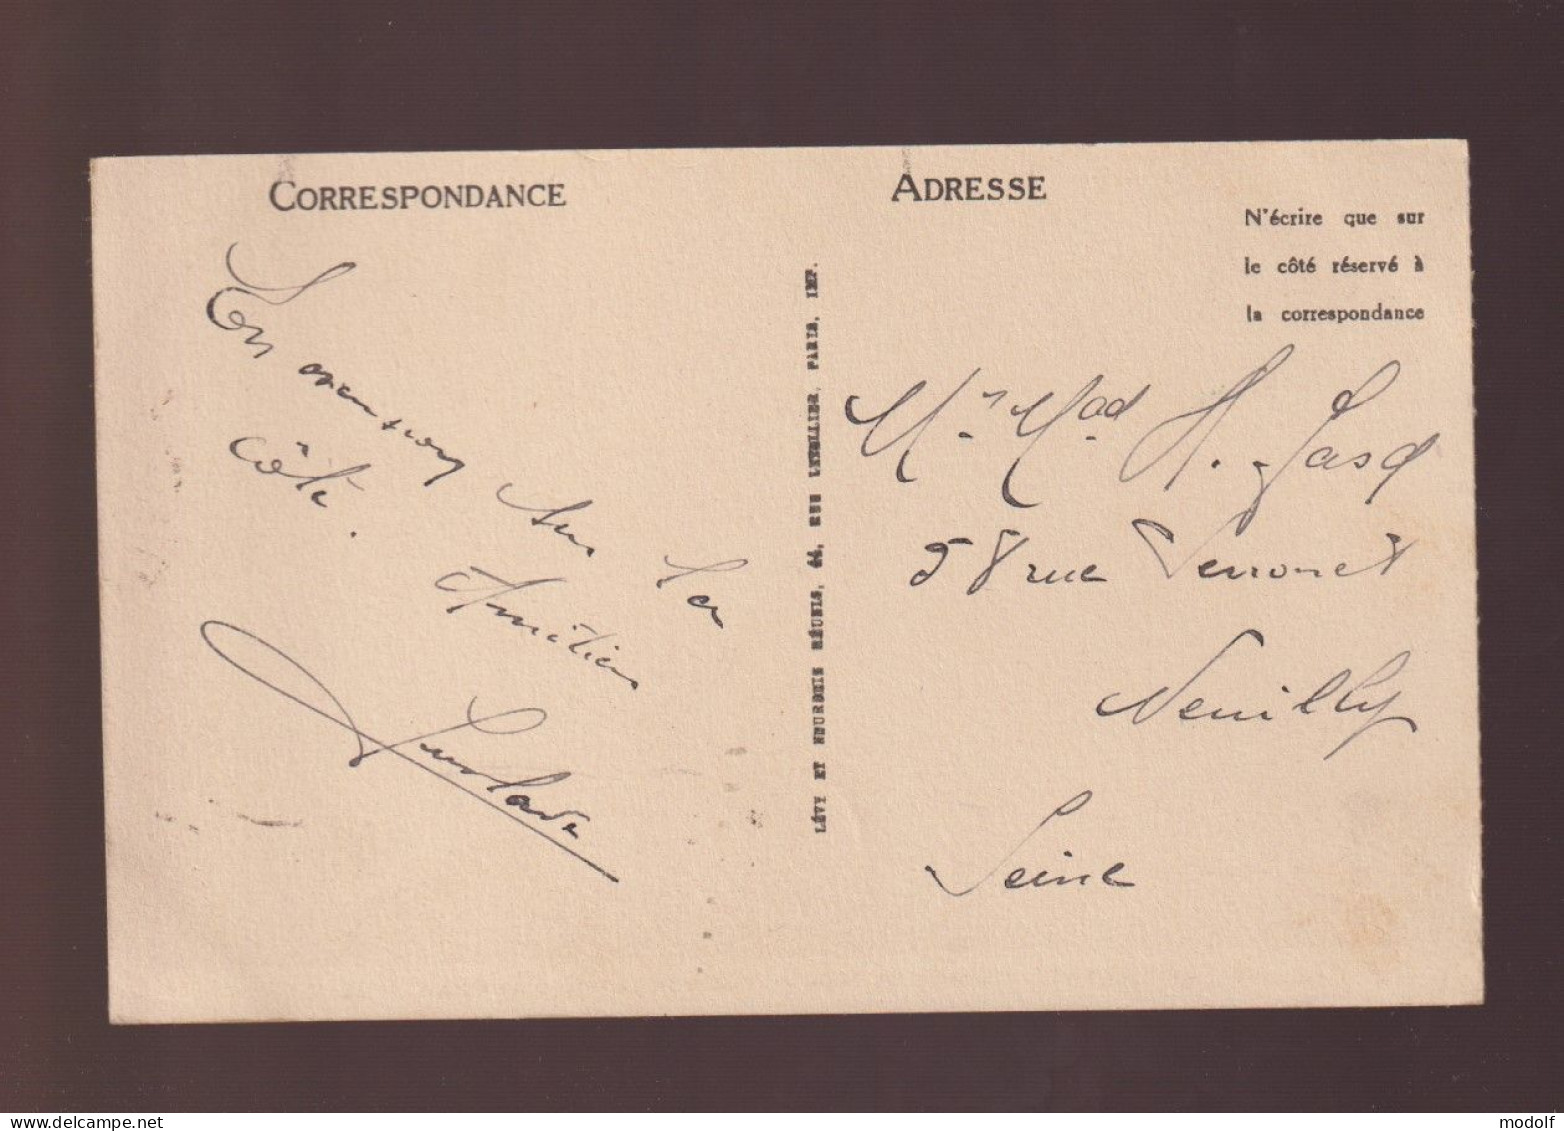 CORRESPONDANCE
En excursion sur la
côte.
Amitiés
ADRESSE
N'écrire que sur
le côté réservé à
la correspondance
LÉVY ET NEURDEIN RÉUNIS, 44, RUE LETELLIER, PARIS, IMP.
Mr Mad H.
58 rue Perronet
Neuilly
Seine
www.delcampe.net
modolf